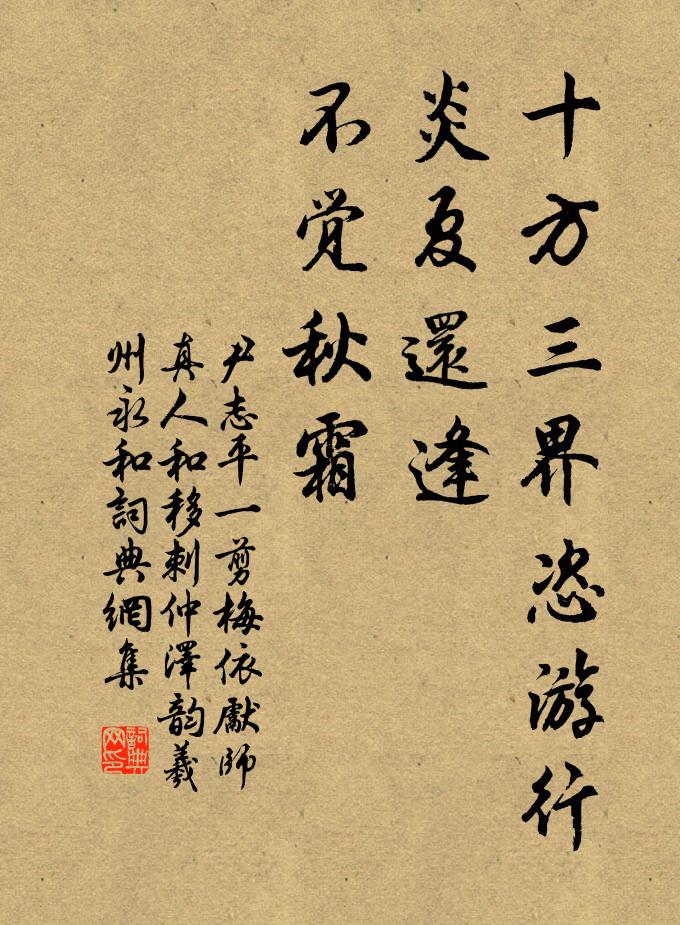 十方三界恣游行
炎夏還逢
不觉秋霜
尹志平一剪梅依獻師
真人和移剌仲澤韵羲
州永和詞典網集
詞典
网印